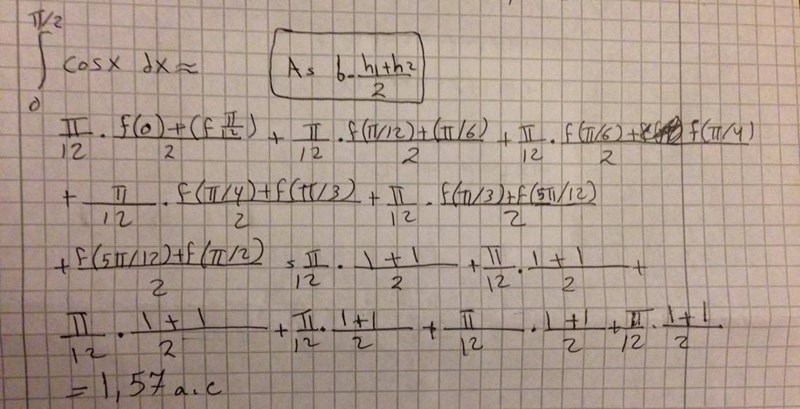 π/2
∫ cosx dx ≈ A= b·(h1+h2)/2
0
π/12 · (f(0)+(f π/12))/2 + π/12 · (f(π/12)+(π/6))/2 + π/12 · (f(π/6)+f(π/4))/2
+ π/12 · (f(π/4)+f(π/3))/2 + π/12 · (f(π/3)+f(5π/12))/2
+ (f(5π/12)+f(π/2))/2 = π/12 · (1+1)/2 + π/12 · (1+1)/2 +
π/12 · (1+1)/2 + π/12 · (1+1)/2 + π/12 · (1+1)/2 + π/12 · (1+1)/2
= 1,57 a.c